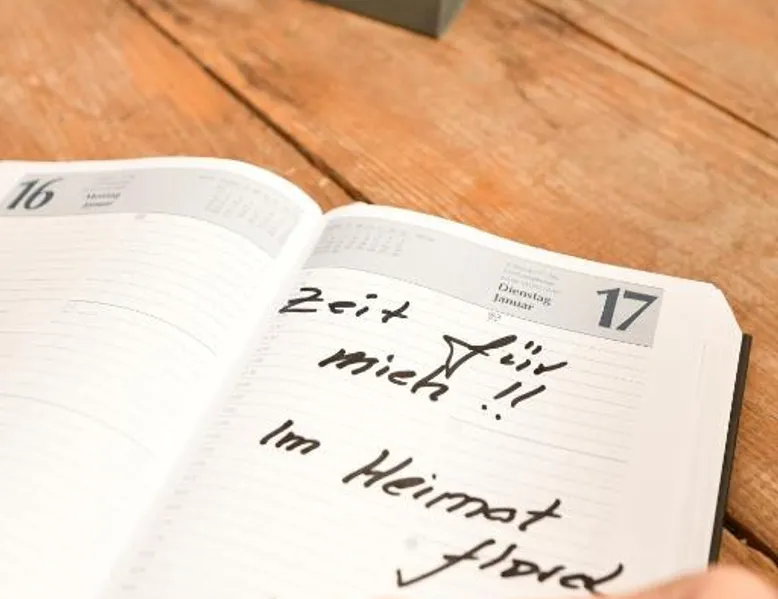 16
Montag
Januar
Dienstag
Januar
17
Zeit für
mich !!
Im Heimat